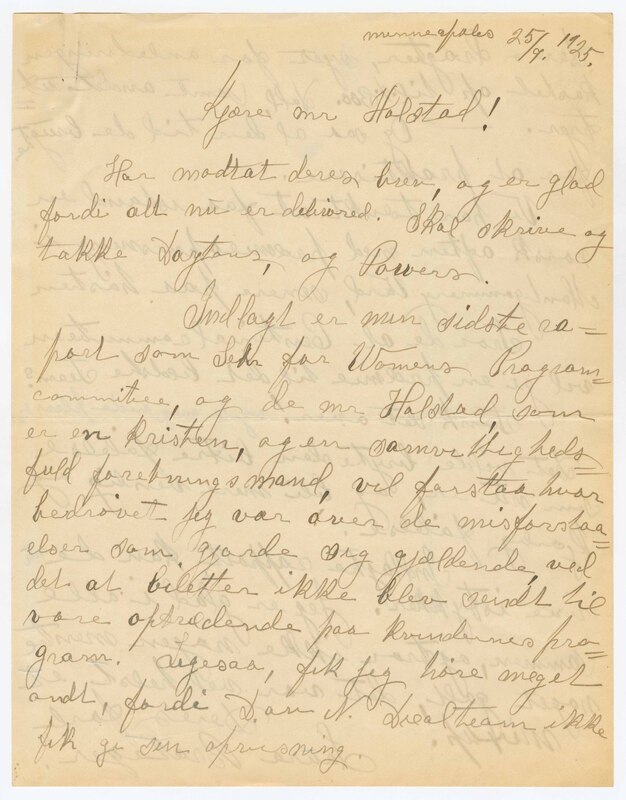 Minneapolis 25/9. 1925.
Kjære Mr Halstad!
Har modtat deres brev, og er glad
fordi alt nu er delivered. Skal skrive og
takke Daytons, og Powers.
Indlagt er min sidste ra=
port som Sekr for Womens Program=
committee, og de mr Halstad, som
er en Kristen, og en samvittigheds=
fuld foretningsmand, vil forstaa hvor
bedrøvet jeg var over de misforstaa=
elser som gjorde sig gjældende, ved
det at biletter ikke blev sendt til
vore optrædende paa kvindernes pro=
gram. Ligesaa, fik jeg høre meget
ondt, fordi Dan N. ikke
fik gi sin opvisning.